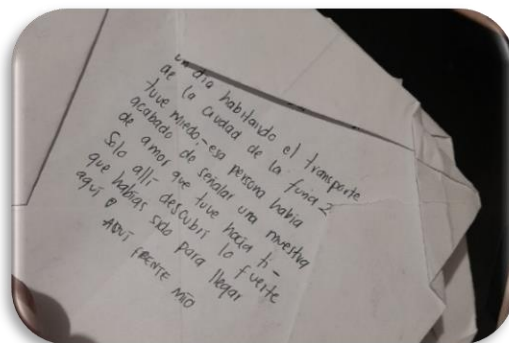 un día habitando el transporte
de la ciudad de la furia 2
tuve miedo-esa persona había
acabado de señalar una muestra
de amor que tuve hacia ti-
Solo allí descubrí lo fuerte
que habías sido para llegar
aquí
AQUÍ FRENTE MÍO